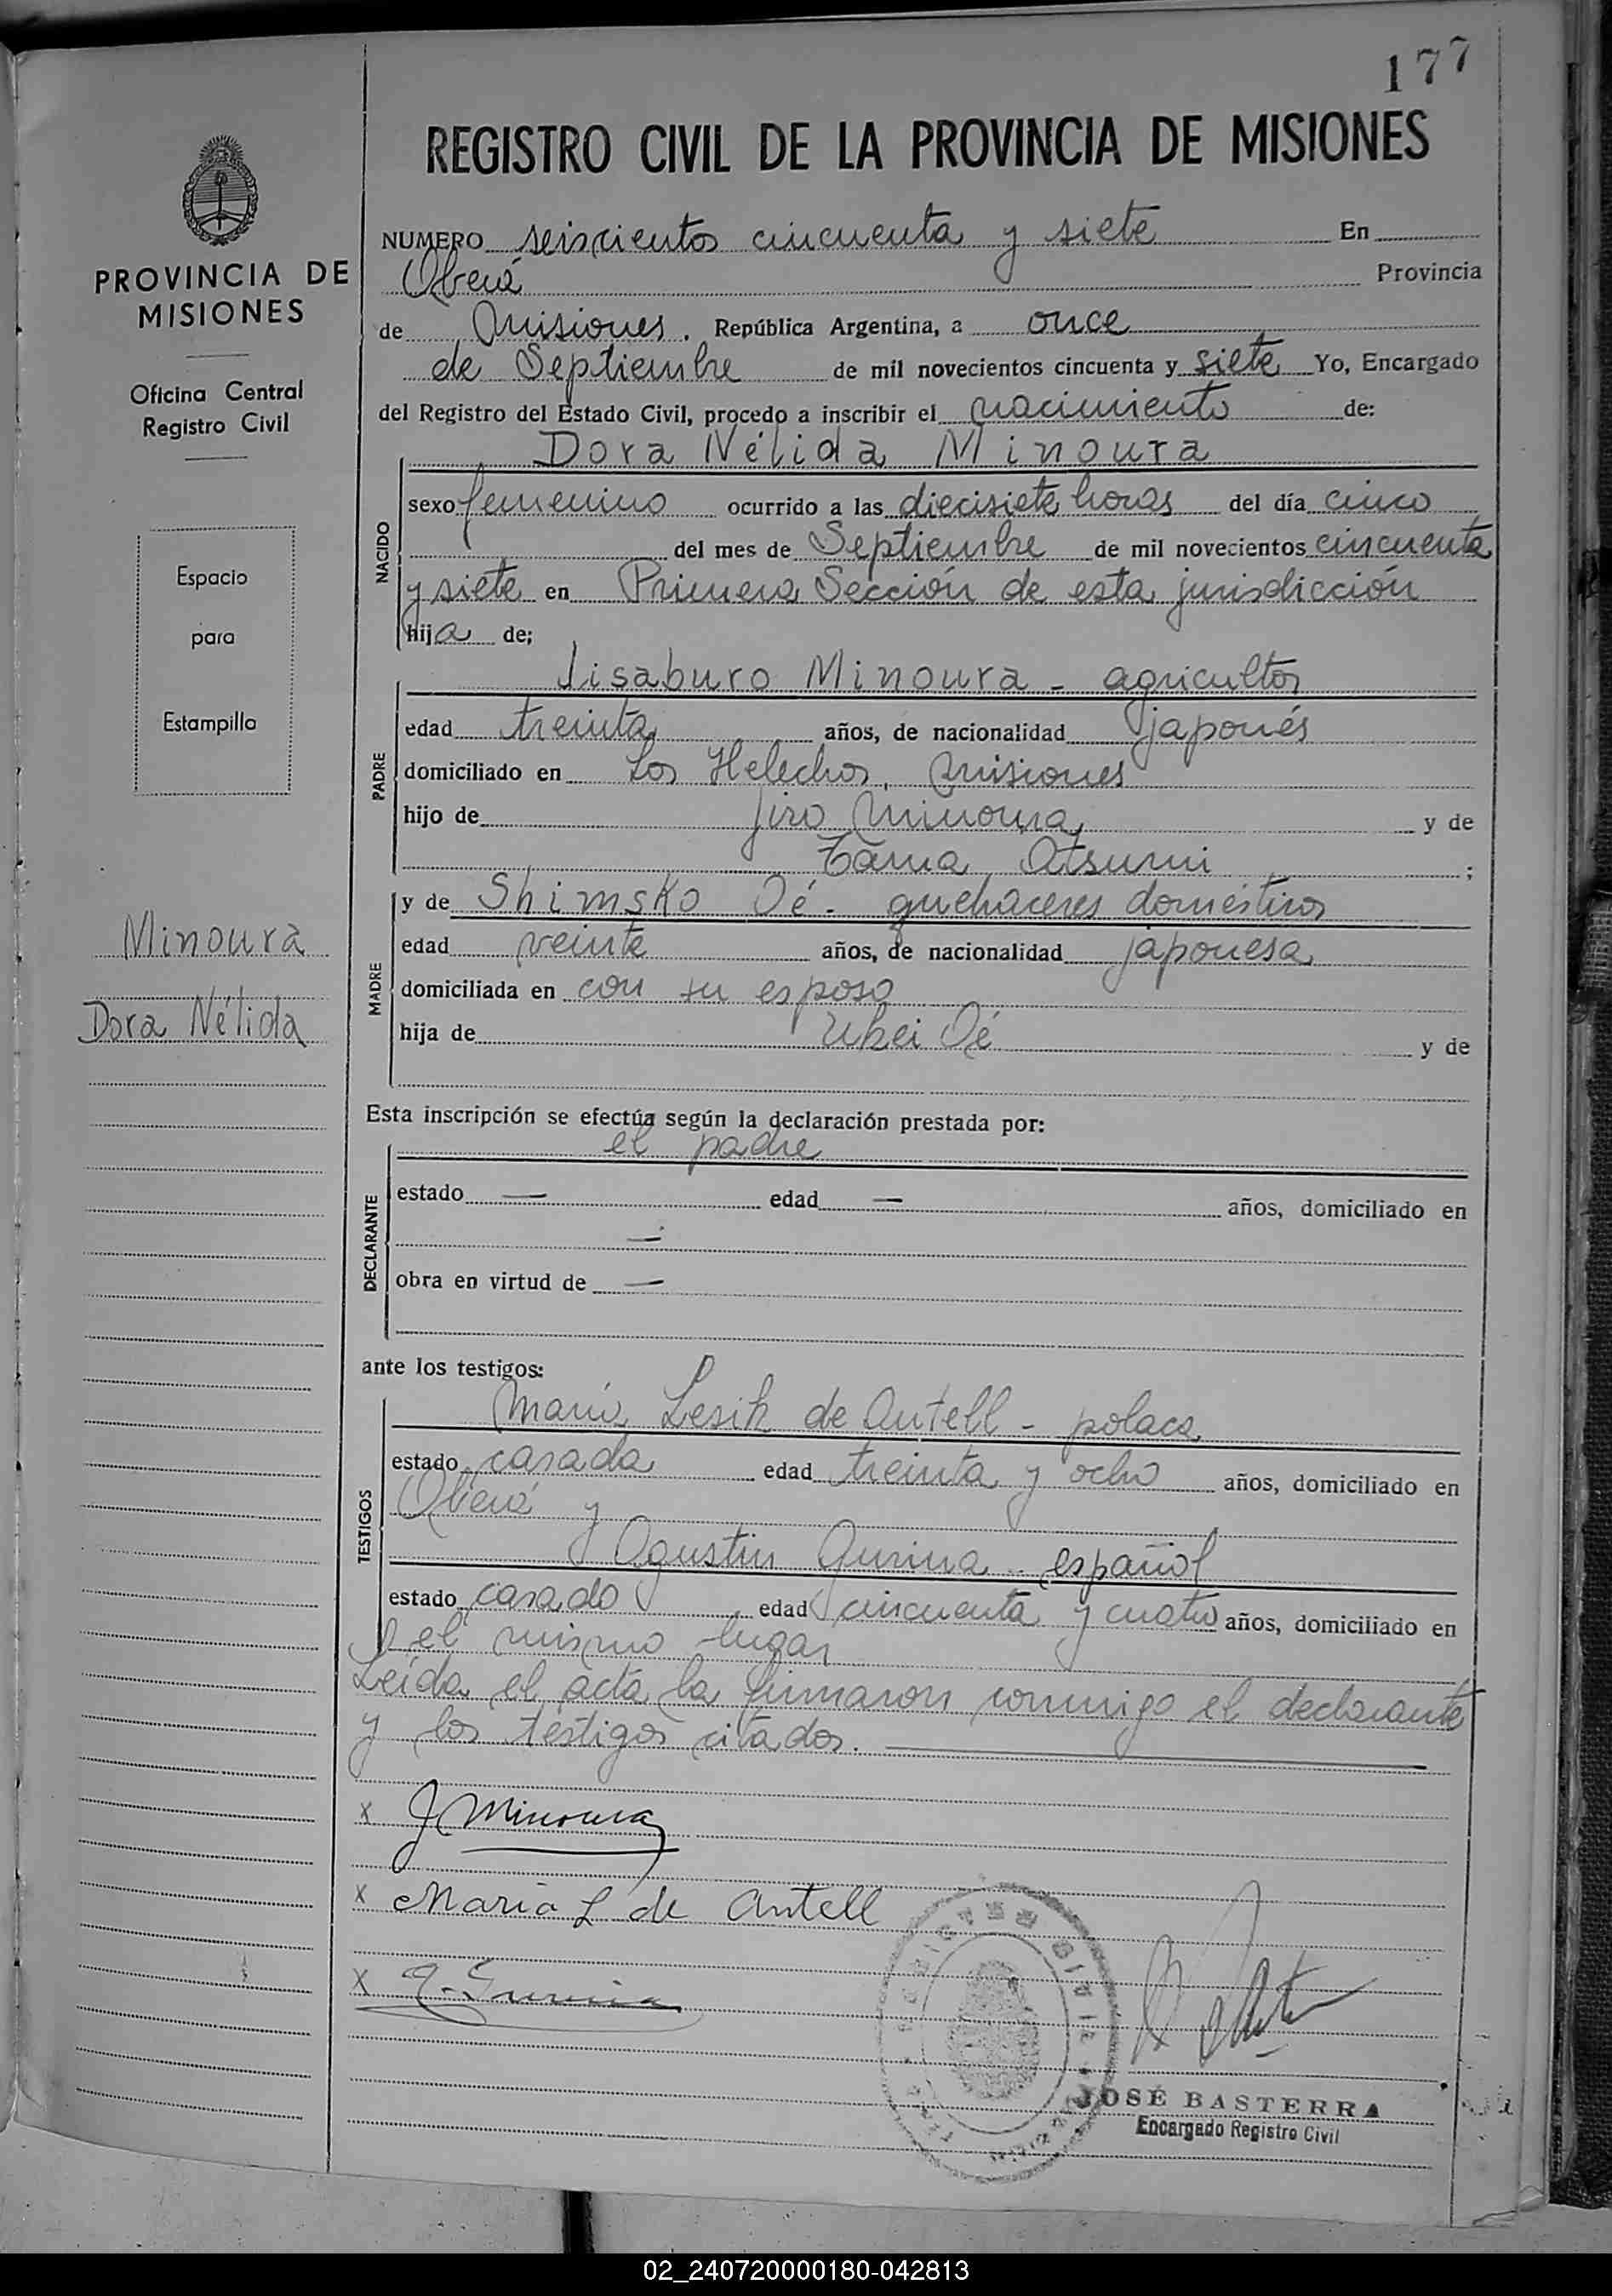 177
REGISTRO CIVIL DE LA PROVINCIA DE MISIONES
PROVINCIA DE
MISIONES
Oficina Central
Registro Civil
Espacio
para
Estampilla
Minoura
Dora Nélida
NUMERO seiscientos cincuenta y siete En
Oberá Provincia
de Misiones. República Argentina, a once
de Septiembre de mil novecientos cincuenta y siete Yo, Encargado
del Registro del Estado Civil, procedo a inscribir el nacimiento de:
Dora Nélida Minoura
NACIDO
sexo femenino ocurrido a las diecisiete horas del día cinco
del mes de Septiembre de mil novecientos cincuenta
y siete en Primera Sección de esta jurisdicción
hija de;
Jisaburo Minoura - agricultor
PADRE
edad treinta años, de nacionalidad japonés
domiciliado en Los Helechos, Misiones
hijo de Jiro Minoura y de
Tama Atsumi ;
MADRE
y de Shimsko Oé - quehaceres domésticos
edad veinte años, de nacionalidad japonesa
domiciliada en con su esposo
hija de Ukei Oé y de
Esta inscripción se efectúa según la declaración prestada por:
el padre
DECLARANTE
estado — edad — años, domiciliado en
—
obra en virtud de —
ante los testigos:
TESTIGOS
María Lesik de Antell - polaca
estado casada edad treinta y ocho años, domiciliado en
Oberá y
Agustin Gurina - español
estado casado edad cincuenta y cuatro años, domiciliado en
el mismo lugar
Leída el acta la firmaron conmigo el declarante
y los testigos citados.
x J Minoura
x Maria L de Antell
x
REGISTRO CIVIL
JOSÉ BASTERRA
Encargado Registro Civil
02_240720000180-042813